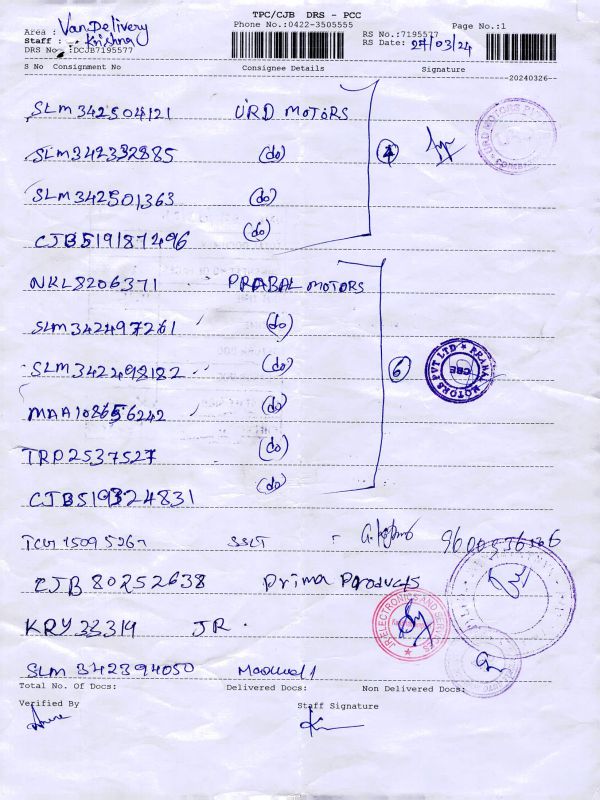 TPC/CJB DRS - PCC
Phone No.:0422-3505555 Page No.:1
Area : Van Delivery
Staff : Krishna
DRS No :DCJB7195577
RS No.:7195577
RS Date: 27/03/24
S No Consignment No Consignee Details Signature
20240326
SLM342504121 URD MOTORS
SLM342332885 (do) 4
SLM342501363 (do)
CJB519187496 (do)
NKL8206371 PRABAL MOTORS
SLM342497261 (do)
SLM342498182 (do) 6
MAA108656242 (do)
TRP2537527 (do)
CJB519324831 (do)
SSLT
CJB 80252638 Prima Products
KRY 33319 JR.
SLM 342394050
Total No. Of Docs: Delivered Docs: Non Delivered Docs:
Verified By Staff Signature
URD MOTORS
PRABAL MOTORS PVT LTD
CBE
JR ELECTRONICS AND SERVICES